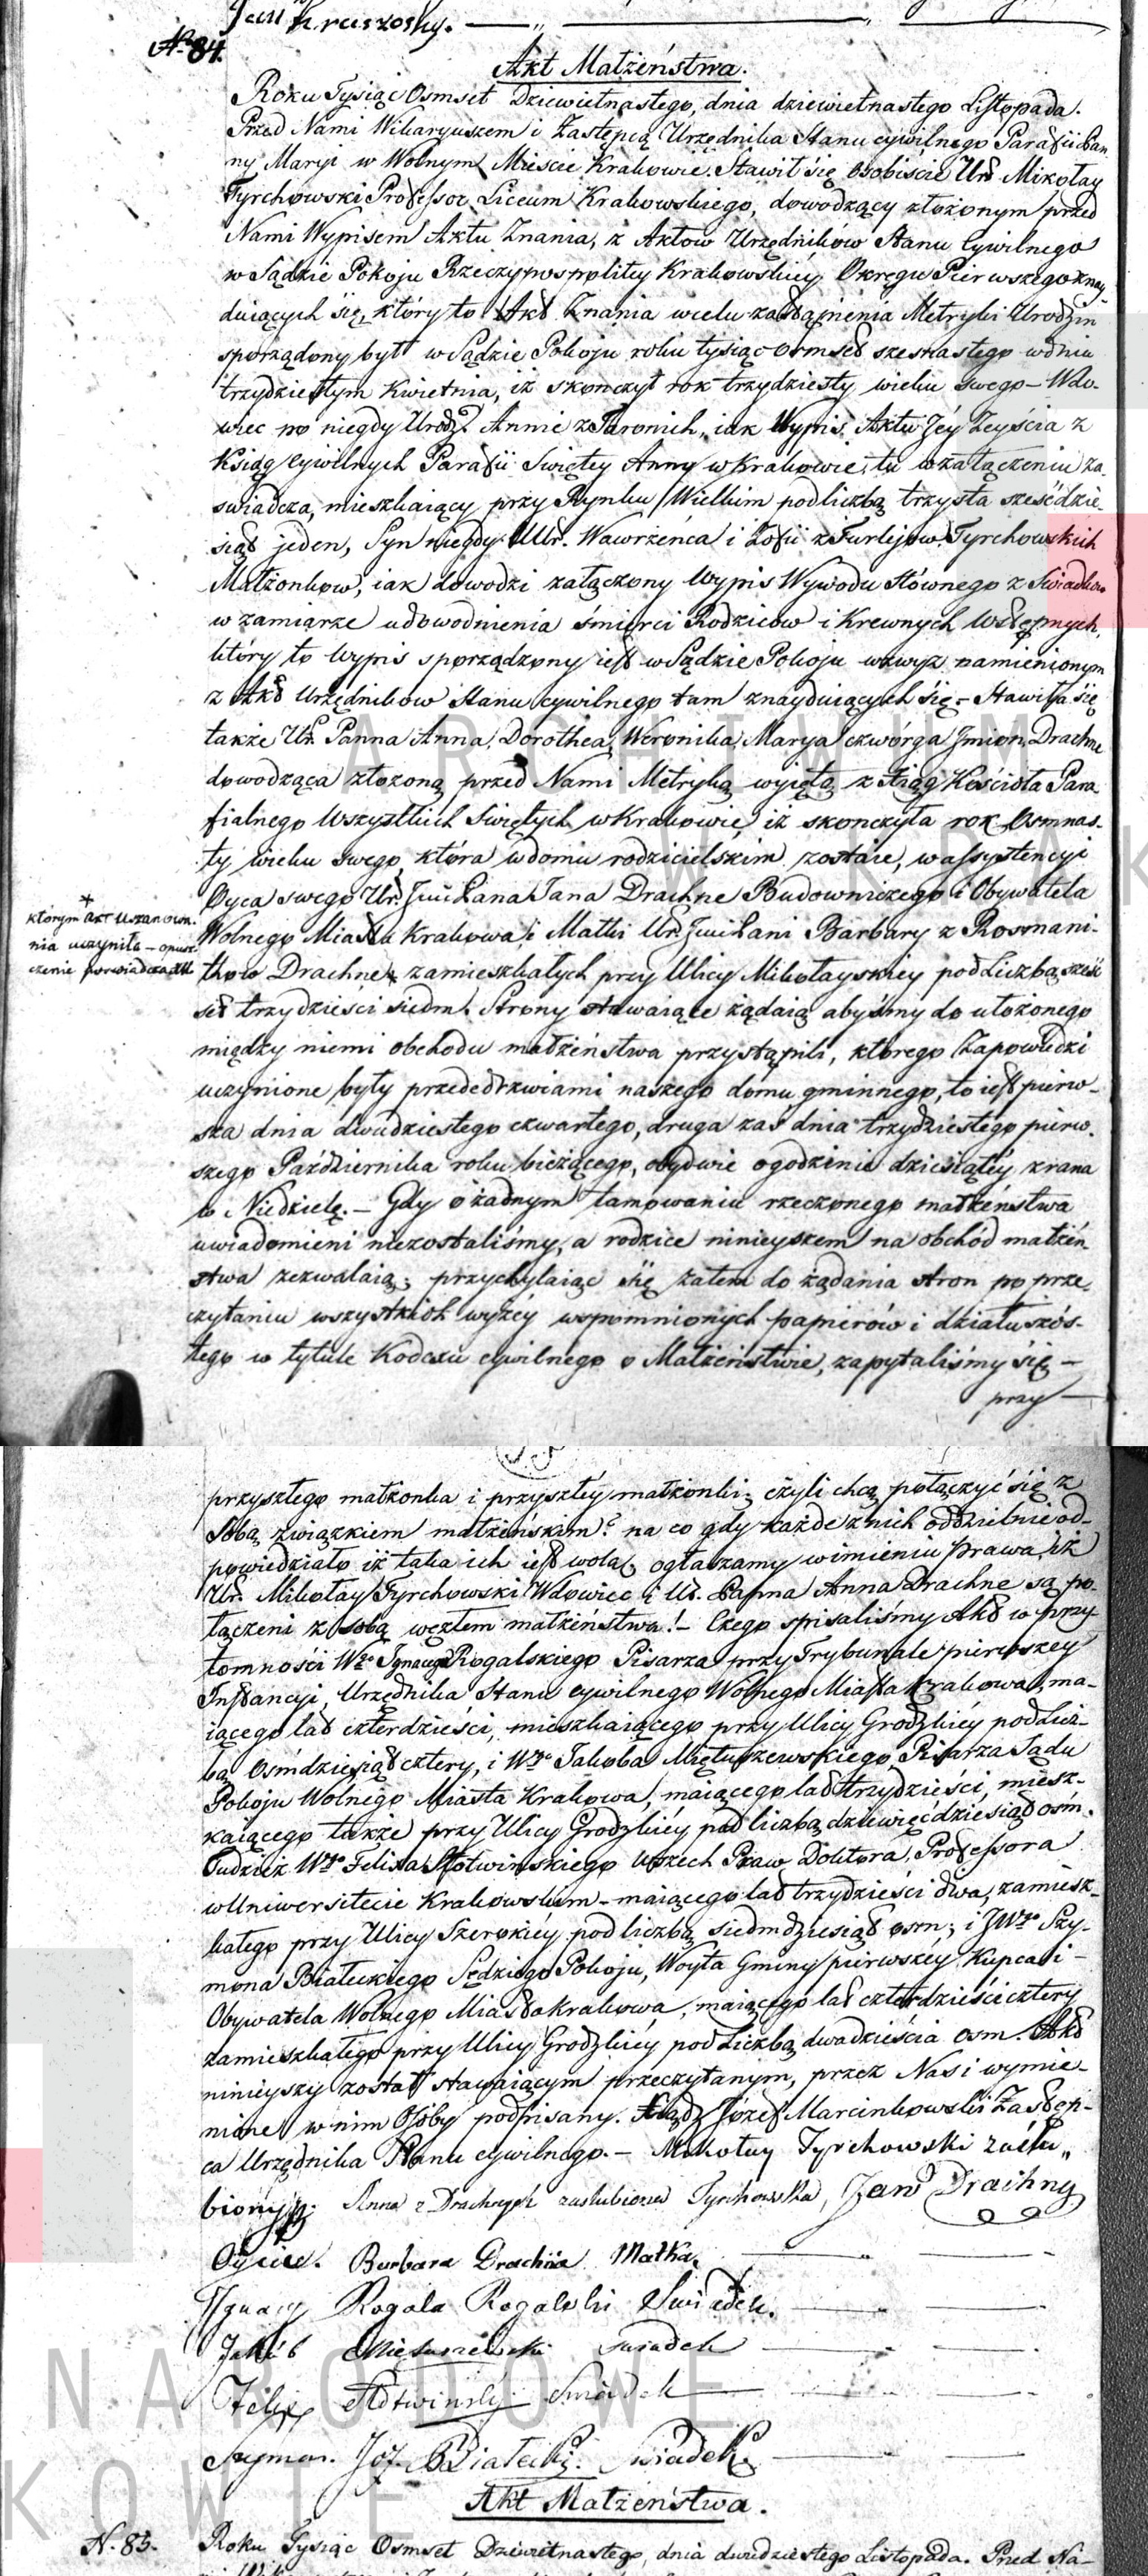 Jan Kruszoski.
N. 84.
Akt Małżeństwa.
Roku Tysiąc Osmset Dziewiętnastego, dnia dziewiętnastego Listopada.
Przed Nami Wikaryuszem i Zastępcą Urzędnika Stanu cywilnego Parafii Pan
ny Maryi w Wolnym Mieście Krakowie. Stawił się osobiście Ur. Mikołay
Tyrchowski Professor Liceum Krakowskiego, dowodzący złożonym przed
Nami Wypisem Aktu Znania, z Aktow Urzędników Stanu Cywilnego
w Sądzie Pokoju Rzeczypospolitey Krakowskiey Okręgu Pierwszego znay
duiących się, który to Akt Znania wcelu zastąpienia Metryki Urodzin
sporządony był w Sądzie Pokoju roku tysiąc osmset szesnastego wdniu
trzydziestym Kwietnia, iż skończył rok trzydziesty wieku swego – Wdo-
wiec po niegdy Urodz. Annie z Taronich, iak Wypis Aktu Jéy Zeyścia z
Ksiąg Cywilnych Parafii Swiętey Anny w Krakowie, tu wzałączeniu za-
swiadcza, mieszkaiący przy Rynku Wielkim pod liczbą trzysta sześćdzie-
siąt jeden, Syn niegdy Ur. Wawrzeńca i Zofii z Furlejow Tyrchowskich
Małżonkow, iak dowodzi załączony Wypis Wywodu Słównego z Swiadkow
w zamiarze udowodnienia śmierci Rodziców i Krewnych Wstępnych,
który to Wypis sporządzony iest w Sądzie Pokoju wzwyż namienionym
z Akt Urzędnikow Stanu cywilnego tam znayduiących się – Stawiła się
także Ur. Panna Anna, Dorothea, Weronika, Marya czwórga Jmion Drachne
dowodząca złożoną przed Nami Metryką wyiętą z Xiąg Kościoła Para
fialnego Wszystkich Swiętych w Krakowie, iż skonczyła rok Osmnas-
ty wieku swego, która w domu rodzicielskim zostaie, w assystencyi
Oyca swego Ur. Jmci Pana Jana Drachne Budowniczego i Obywatela
Wolnego Miasta Krakowa i Matki Ur. Jmci Pani Barbary z Rosmani-
thow Drachne, zamieszkałych przy Ulicy Mikołayskiey pod Liczbą sześć
set trzydzieści siedm. Strony stawaiące żądaią abyśmy do ułożonego
między niemi obchodu małżeństwa przystąpili, którego Zapowiedzi
uczynione były przededrzwiami naszego domu gminnego, to iest pierw-
sza dnia dwudziestego czwartego, druga zas dnia trzydziestego pierw-
szego Października roku bieżącego, obydwie ogodzinie dziesiątéy zrana
w Niedzielę. – Gdy o żadnym tamowaniu rzeczonego małżeństwa
uwiadomieni niezostaliśmy, a rodzice ninieyszem na obchód małżeń
stwa zezwalaią; przychylaiąc się zatem do żądania stron po prze-
czytaniu wszystkich wyżéy wspomnionych papierów i działu szós-
tego w tytule Kodexu cywilnego o Małżeństwie, zapytaliśmy się –
przy –
którym akt uszanowa-
nia uczyniła – opusz-
czenie poswiadcza
przyszłego małżonka i przyszłéy małżonki; czyli chcą połączyć się z
Sobą związkiem małżeńskim? na co gdy każde z nich oddzielnie od-
powiedziało iż taka ich iest wola; ogłaszamy w imieniu prawa iż
Ur. Mikołay Tyrchowski Wdowiec i Ur. Panna Anna Drachne są po-
łączeni z sobą węzłem małżeństwa! – Czego spisaliśmy Akt w przy-
tomności Wgo Ignacego Rogalskiego Pisarza przy Trybunale pierwszey
Instancyi, Urzędnika Stanu cywilnego Wolnego Miasta Krakowa, ma-
iącego lat czterdzieści, mieszkaiącego przy Ulicy Grodzkiéy pod Licz-
bą osmdziesiąt cztery, i Wgo Jakóba Miętuszewskiego Pisarza Sądu
Pokoju Wolnego Miasta Krakowa, maiącego lat trzydzieści, miesz-
kaiącego także przy Ulicy Grodzkiéy pod liczbą dziewięćdziesiąt osm.
Tudzież Wgo Felixa Słotwinskiego Wszech Praw Doktora, Professora
w Uniwersitecie Krakowskim – maiącego lat trzydzieści dwa, zamiesz-
kałego przy Ulicy Szerokiéy pod liczbą siedmdziesiąt osm; i JWgo Szy-
mona Białeckiego Sędziego Pokoju, Woyta Gminy pierwszéy Kupca i –
Obywatela Wolnego Miasta Krakowa, maiącego lat czterdzieści cztery
zamieszkałego przy Ulicy Grodzkiéy pod Liczbą dwadzieścia osm. Akt
ninieyszy został stawaiącym przeczytanym, przez Nas i wymie-
nione w nim Osoby podpisany. Xiądz Józef Marcinkowski Zastęp-
ca Urzędnika Stanu cywilnego. – Mikołay Tyrchowski zaślu
biony. Anna z Drachnych zaslubiona Tyrchowska, Jan Drachny
Oyciec. Barbara Drachna Matka.
Ignacy Rogala Rogalski Swiadek.
Jakób Mietuszewski swiadek
Felix Słotwinski Swiadek
Szymon Józ. Białecki. Swiadek.
Akt Małżeństwa.
N. 85.
Roku Tysiąc Osmset Dziewiętnastego, dnia dwudziestego Listopada. Przed Na-
ARCHIWUM
NARODOWE
W KRAKOWIE